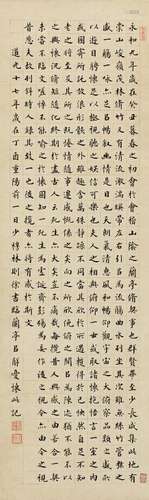 永和九年歲在癸丑暮春之初會于會稽山陰之蘭亭脩稧事也群賢畢至少長咸集此地有
崇山峻領茂林脩竹又有清流激湍暎帶左右引以為流觴曲水列坐其次雖無絲竹管弦之
盛一觴一詠亦足以暢敘幽情是日也天朗氣清惠風和暢仰觀宇宙之大俯察品類之盛所
以遊目騁懷足以極視聽之娛信可樂也夫人之相與俯仰一世或取諸懷抱悟言一室之內
或因寄所託放浪形骸之外雖趣舍萬殊靜躁不同當其欣於所遇暫得於己快然自足不知
老之將至及其所之既惓情隨事遷感慨係之矣向之所欣俛仰之間以為陳迹猶不能不以
之興懷況脩短隨化終期於盡古人云死生亦大矣豈不痛哉每攬昔人興感之由若合一契
未嘗不臨文嗟悼不能喻之於懷固知一死生為虛誕齊彭殤為妄作後之視今亦由今之視
昔悲夫故列敘時人錄其所述雖世殊事異所以興懷其致一也後之攬者亦將有感於斯文
道光十七年歲在丁酉重陽前一日少穆林則徐書臨蘭亭